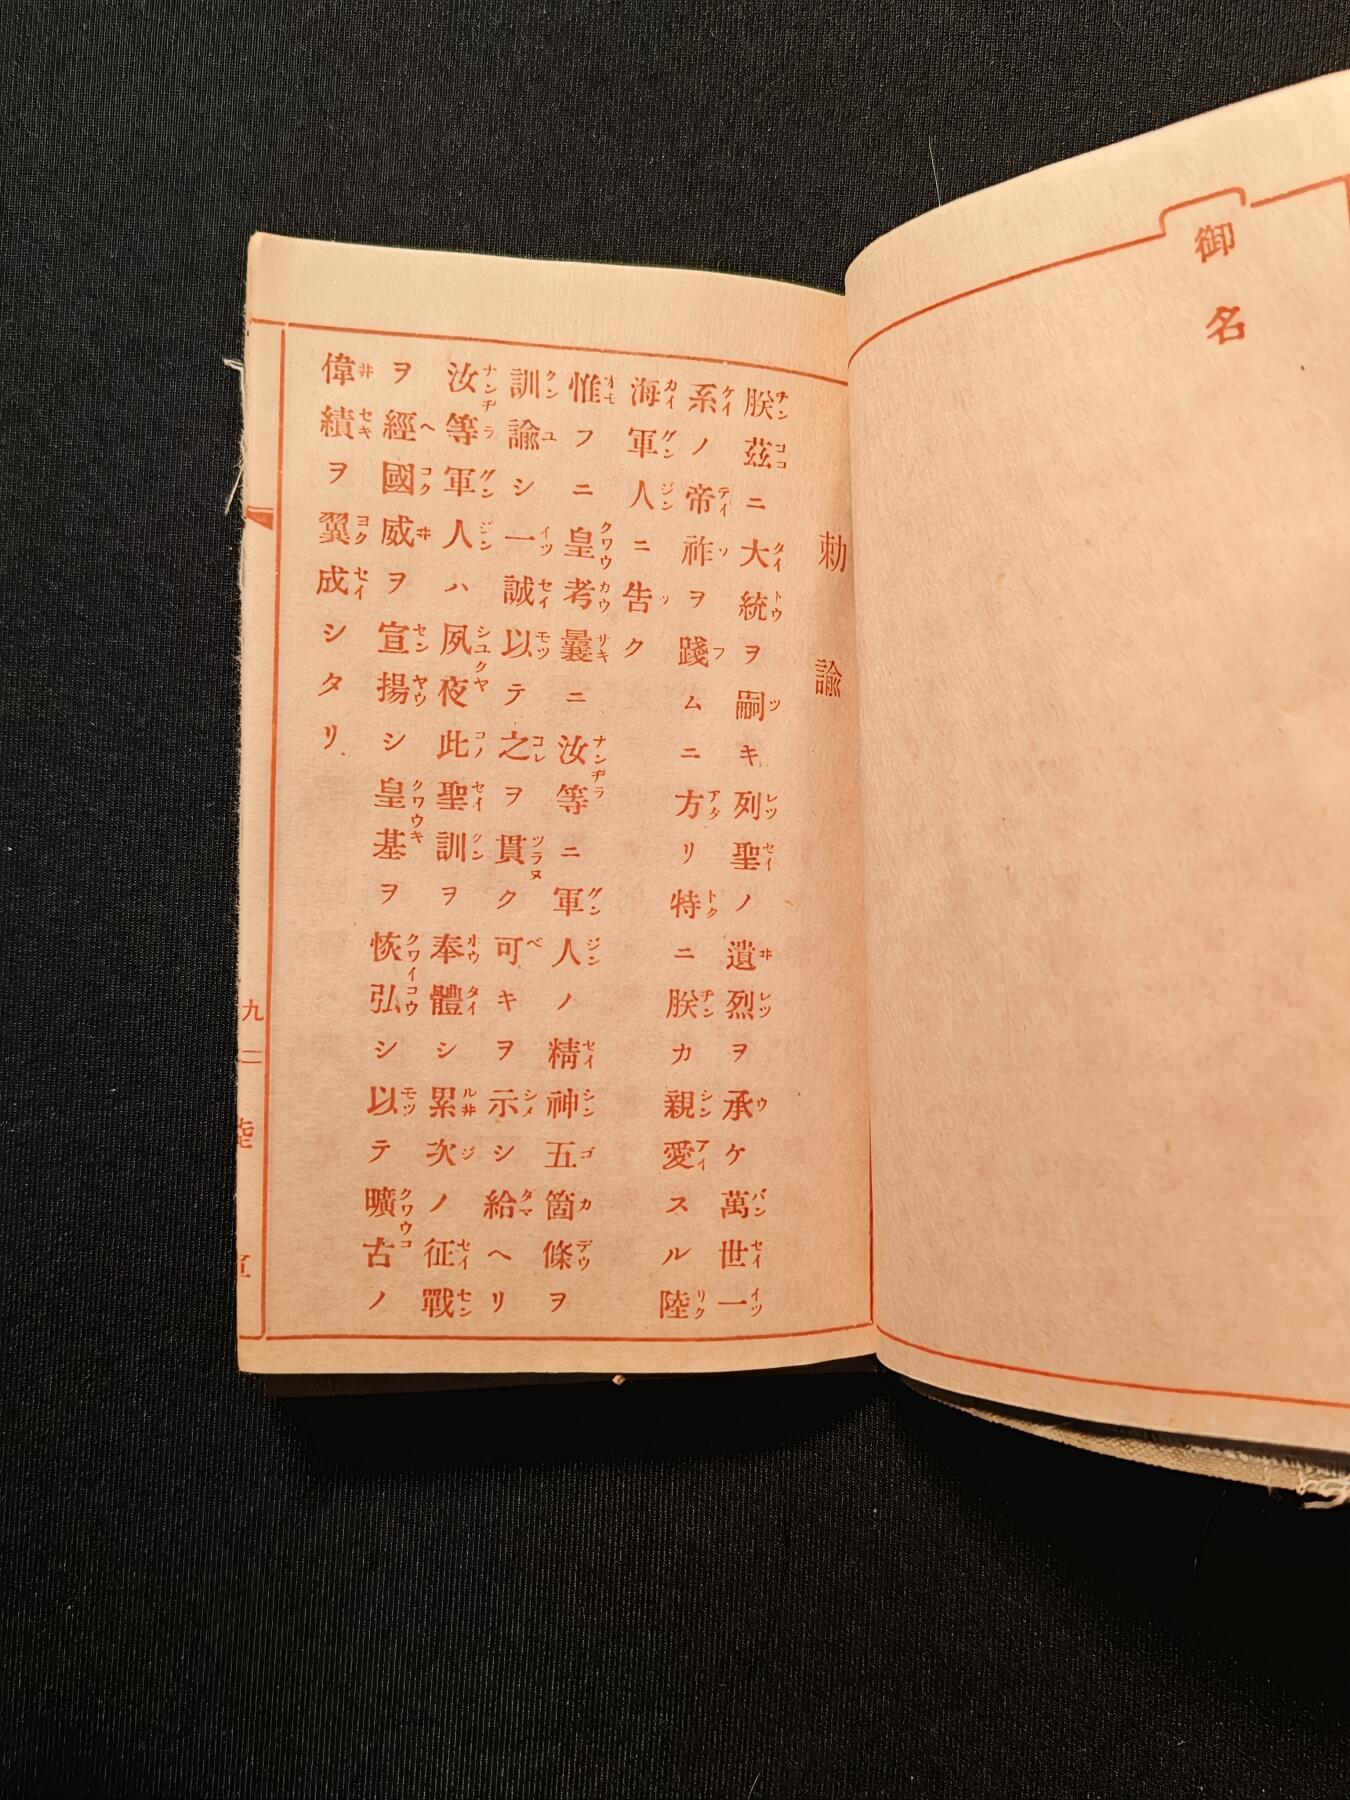 御名
勅諭
朕茲ニ大統ヲ嗣キ列聖ノ遺烈ヲ承ケ萬世一
系ノ帝祚ヲ踐ムニ方リ特ニ朕カ親愛スル陸
海軍人ニ告ク
惟フニ皇考曩ニ汝等ニ軍人ノ精神五箇條ヲ
訓諭シ一誠以テ之ヲ貫ク可キヲ示シ給ヘリ
汝等軍人ハ夙夜此聖訓ヲ奉體シ累次ノ征戰
ヲ經國威ヲ宣揚シ皇基ヲ恢弘シ以テ曠古ノ
偉績ヲ翼成シタリ
九二